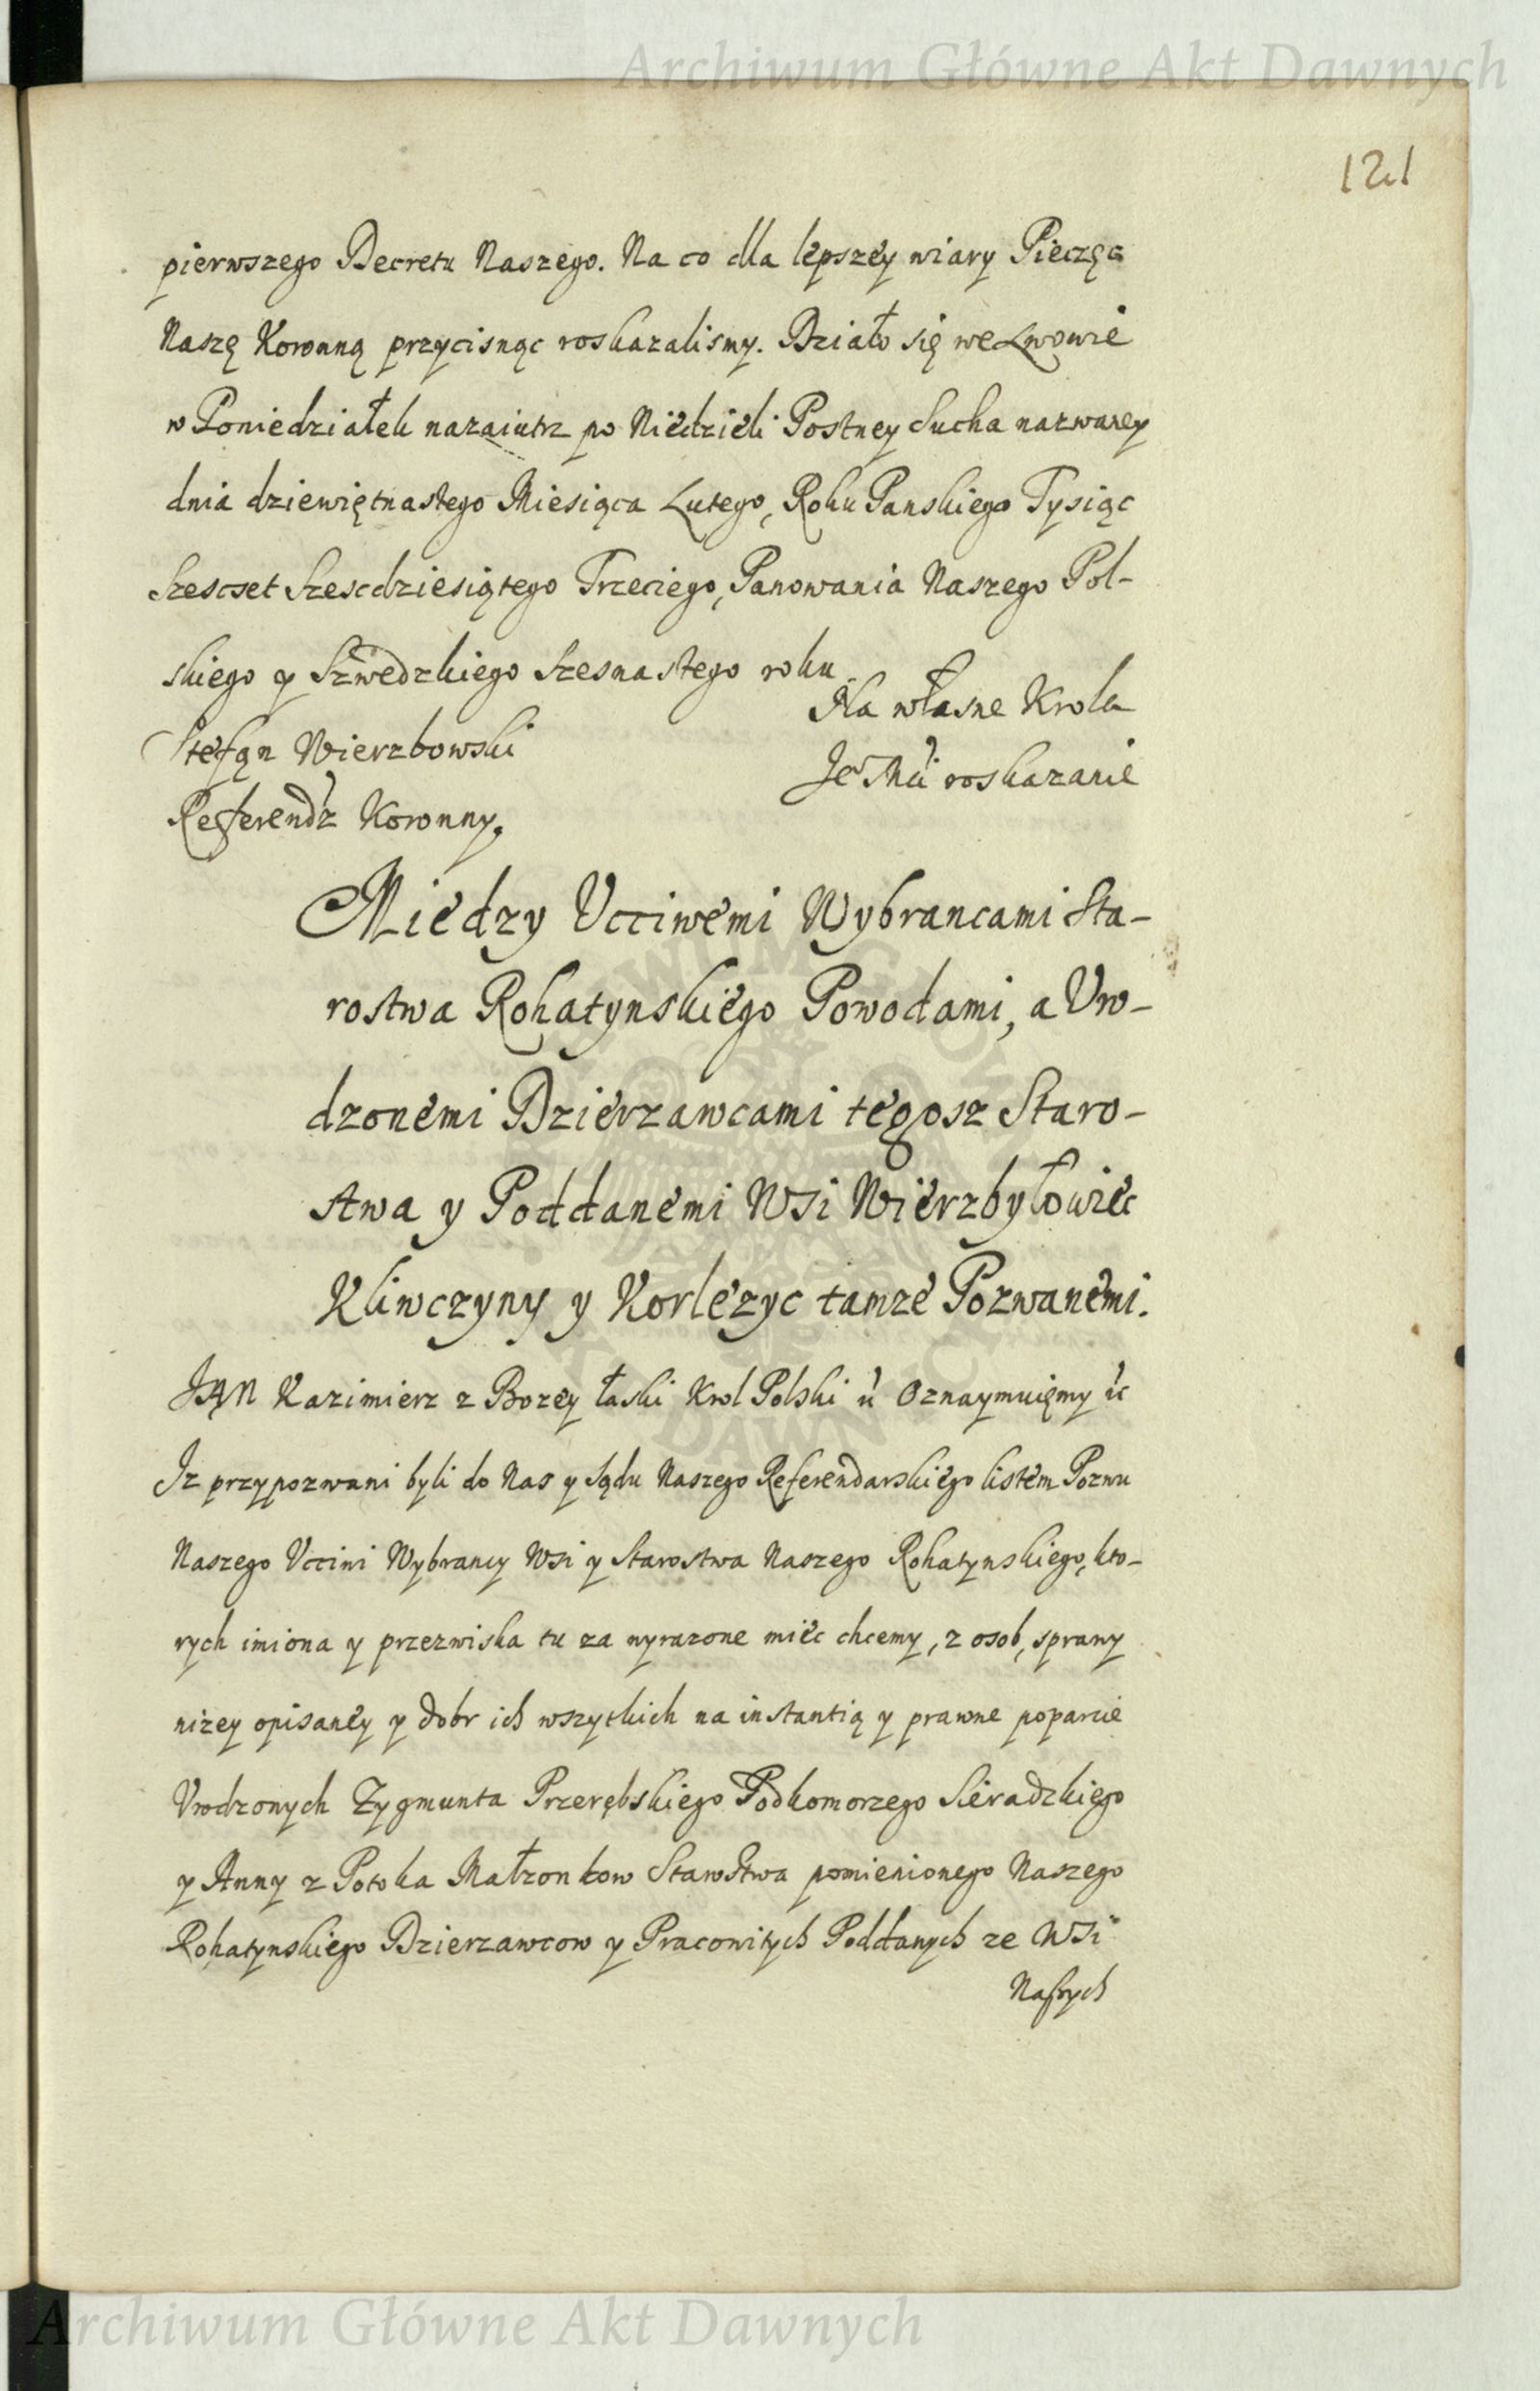 Archiwum Główne Akt Dawnych
121
pierwszego Decretu Naszego. Na co dla lepszey wiary Pieczęć
Naszę Koronną przycisnąc roskazalismy. Działo się we Lwowie
w Poniedziałek nazaiutrz po Niedzieli Postney Sucha nazwaney
dnia dziewiętnastego Miesiąca Lutego, Roku Panskiego Tysiąc
Szescset Szescdziesiątego Trzeciego, Panowania Naszego Pol-
skiego y Szwedzkiego Szesnastego roku.
Na własne Krola
Stefąn Wierzbowski
Je° Mći roskazanie
Referend'z Koronny.
Miedzy Vcciwemi Wybrancami Sta-
rostwa Rohatynskiego Powodami, a Vro-
dzonemi Dzierzawcami tegosz Staro-
stwa y Poddanemi Wsi Wierzbyłowiec
Kliwczyny y Korlezyc tamze Pozwanemi.
JAN Kazimierz z Bozey łaski Krol Polski ć Oznaymuięmy ć
Jz przypozwani byli do Nas y Sądu Naszego Referendarskiego listem Pozwu
Naszego Vcciwi Wybrancy Wsi y Starostwa Naszego Rohatynskiego, kto-
rych imiona y przezwiska tu za wyrazone miec chcemy, z osob, sprawy
nizey opisaney y dobr ich wszytkich na instantią y prawne poparcie
Vrodzonych Zygmunta Przerębskiego Podkomorzego Sieradzkiego
y Anny z Potoka Małzonkow Starostwa pomienionego Naszego
Rohatynskiego Dzierzawcow y Pracowitych Poddanych ze Wsi
Naszych
Archiwum Główne Akt Dawnych